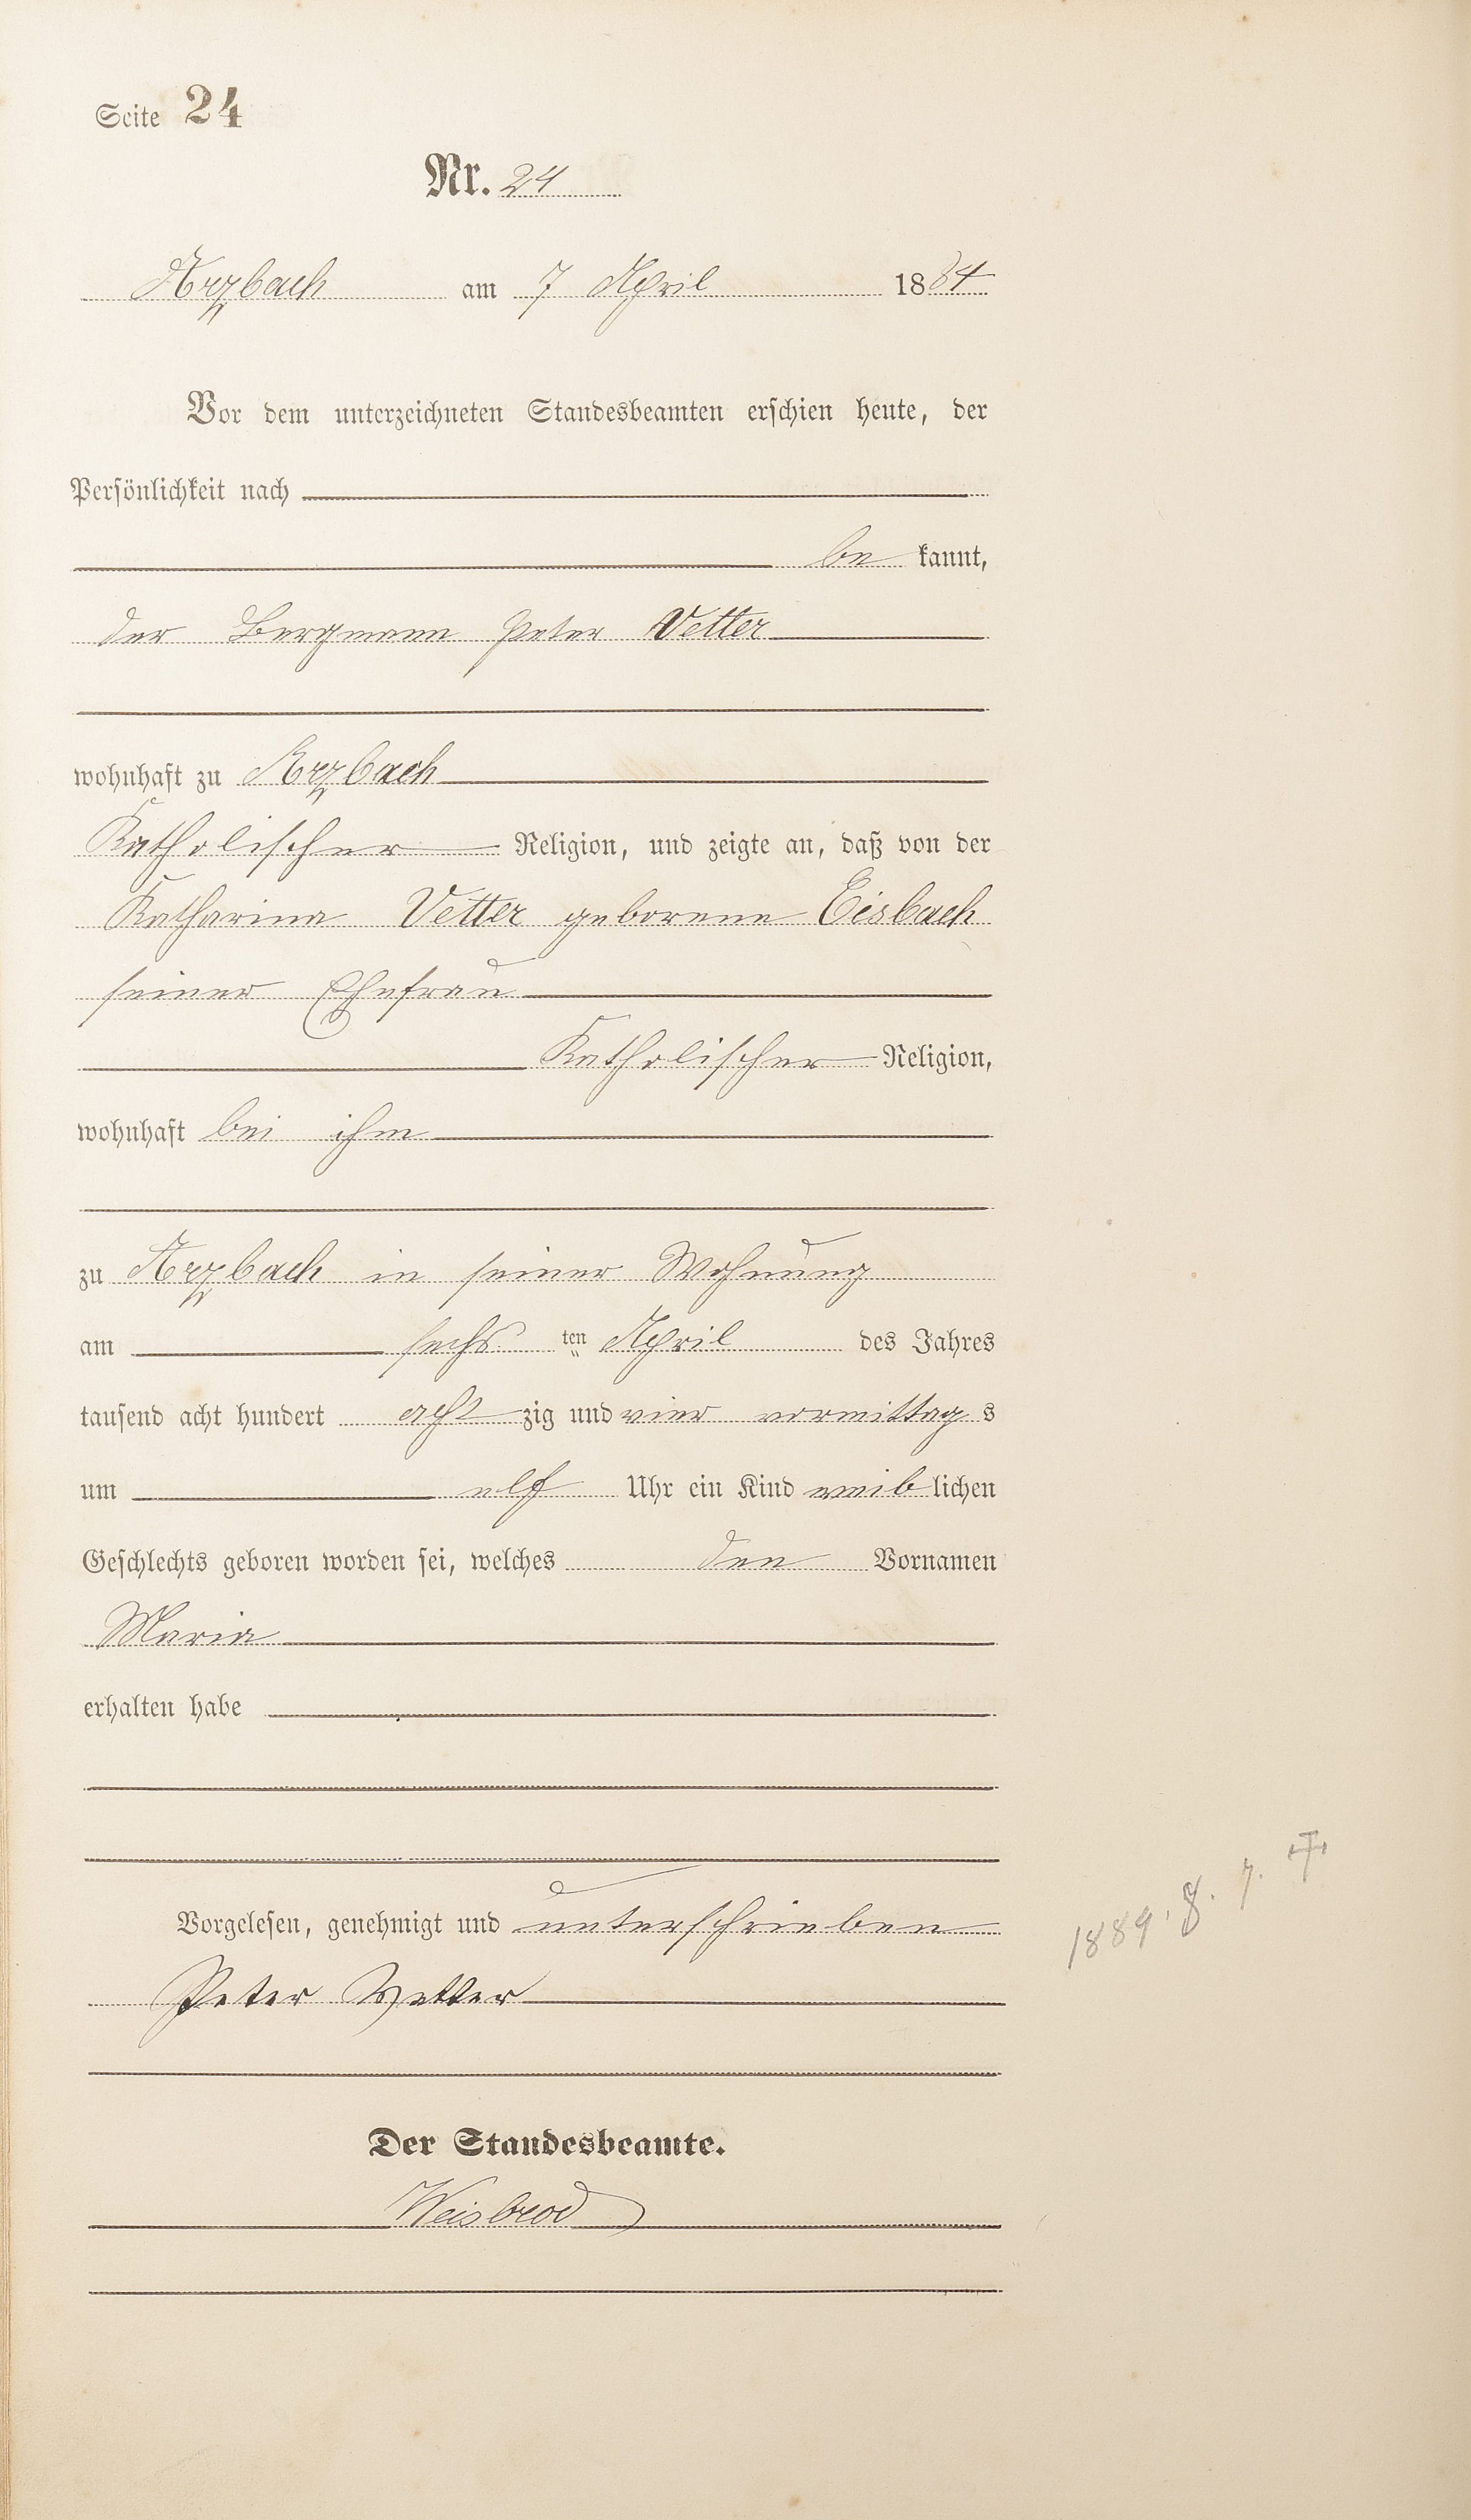 Seite 24
Nr. 24
Arzbach am 7 April 1884
Vor dem unterzeichneten Standesbeamten erschien heute, der
Persönlichkeit nach
be kannt,
der Bergmann Peter Vetter
wohnhaft zu Arzbach
Katholischer Religion, und zeigte an, daß von der
Katharina Vetter geborene Eisbach
seiner Ehefrau
Katholischer Religion,
wohnhaft bei ihm
zu Arzbach in seiner Wohnung
am sechs ten April des Jahres
tausend acht hundert acht zig und vier vormittag s
um elf Uhr ein Kind weib lichen
Geschlechts geboren worden sei, welches den Vornamen
Maria
erhalten habe
Vorgelesen, genehmigt und unterschrieben
Peter Vetter
1889. 8. 7. †
Der Standesbeamte.
Weisbrod